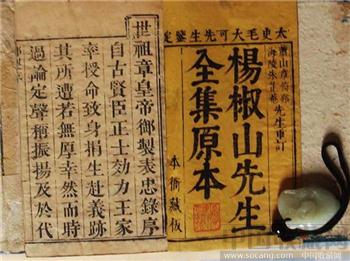 太史毛大可先生鑒定
先生重訂
楊椒山先生
全集原本
本衙藏板
世祖章皇帝御製表忠錄序
自古賢臣正士効力王家
幸授命致身捐生赴義跡
其所遭若無厚幸然而時
過論定聲稱振揚及於代